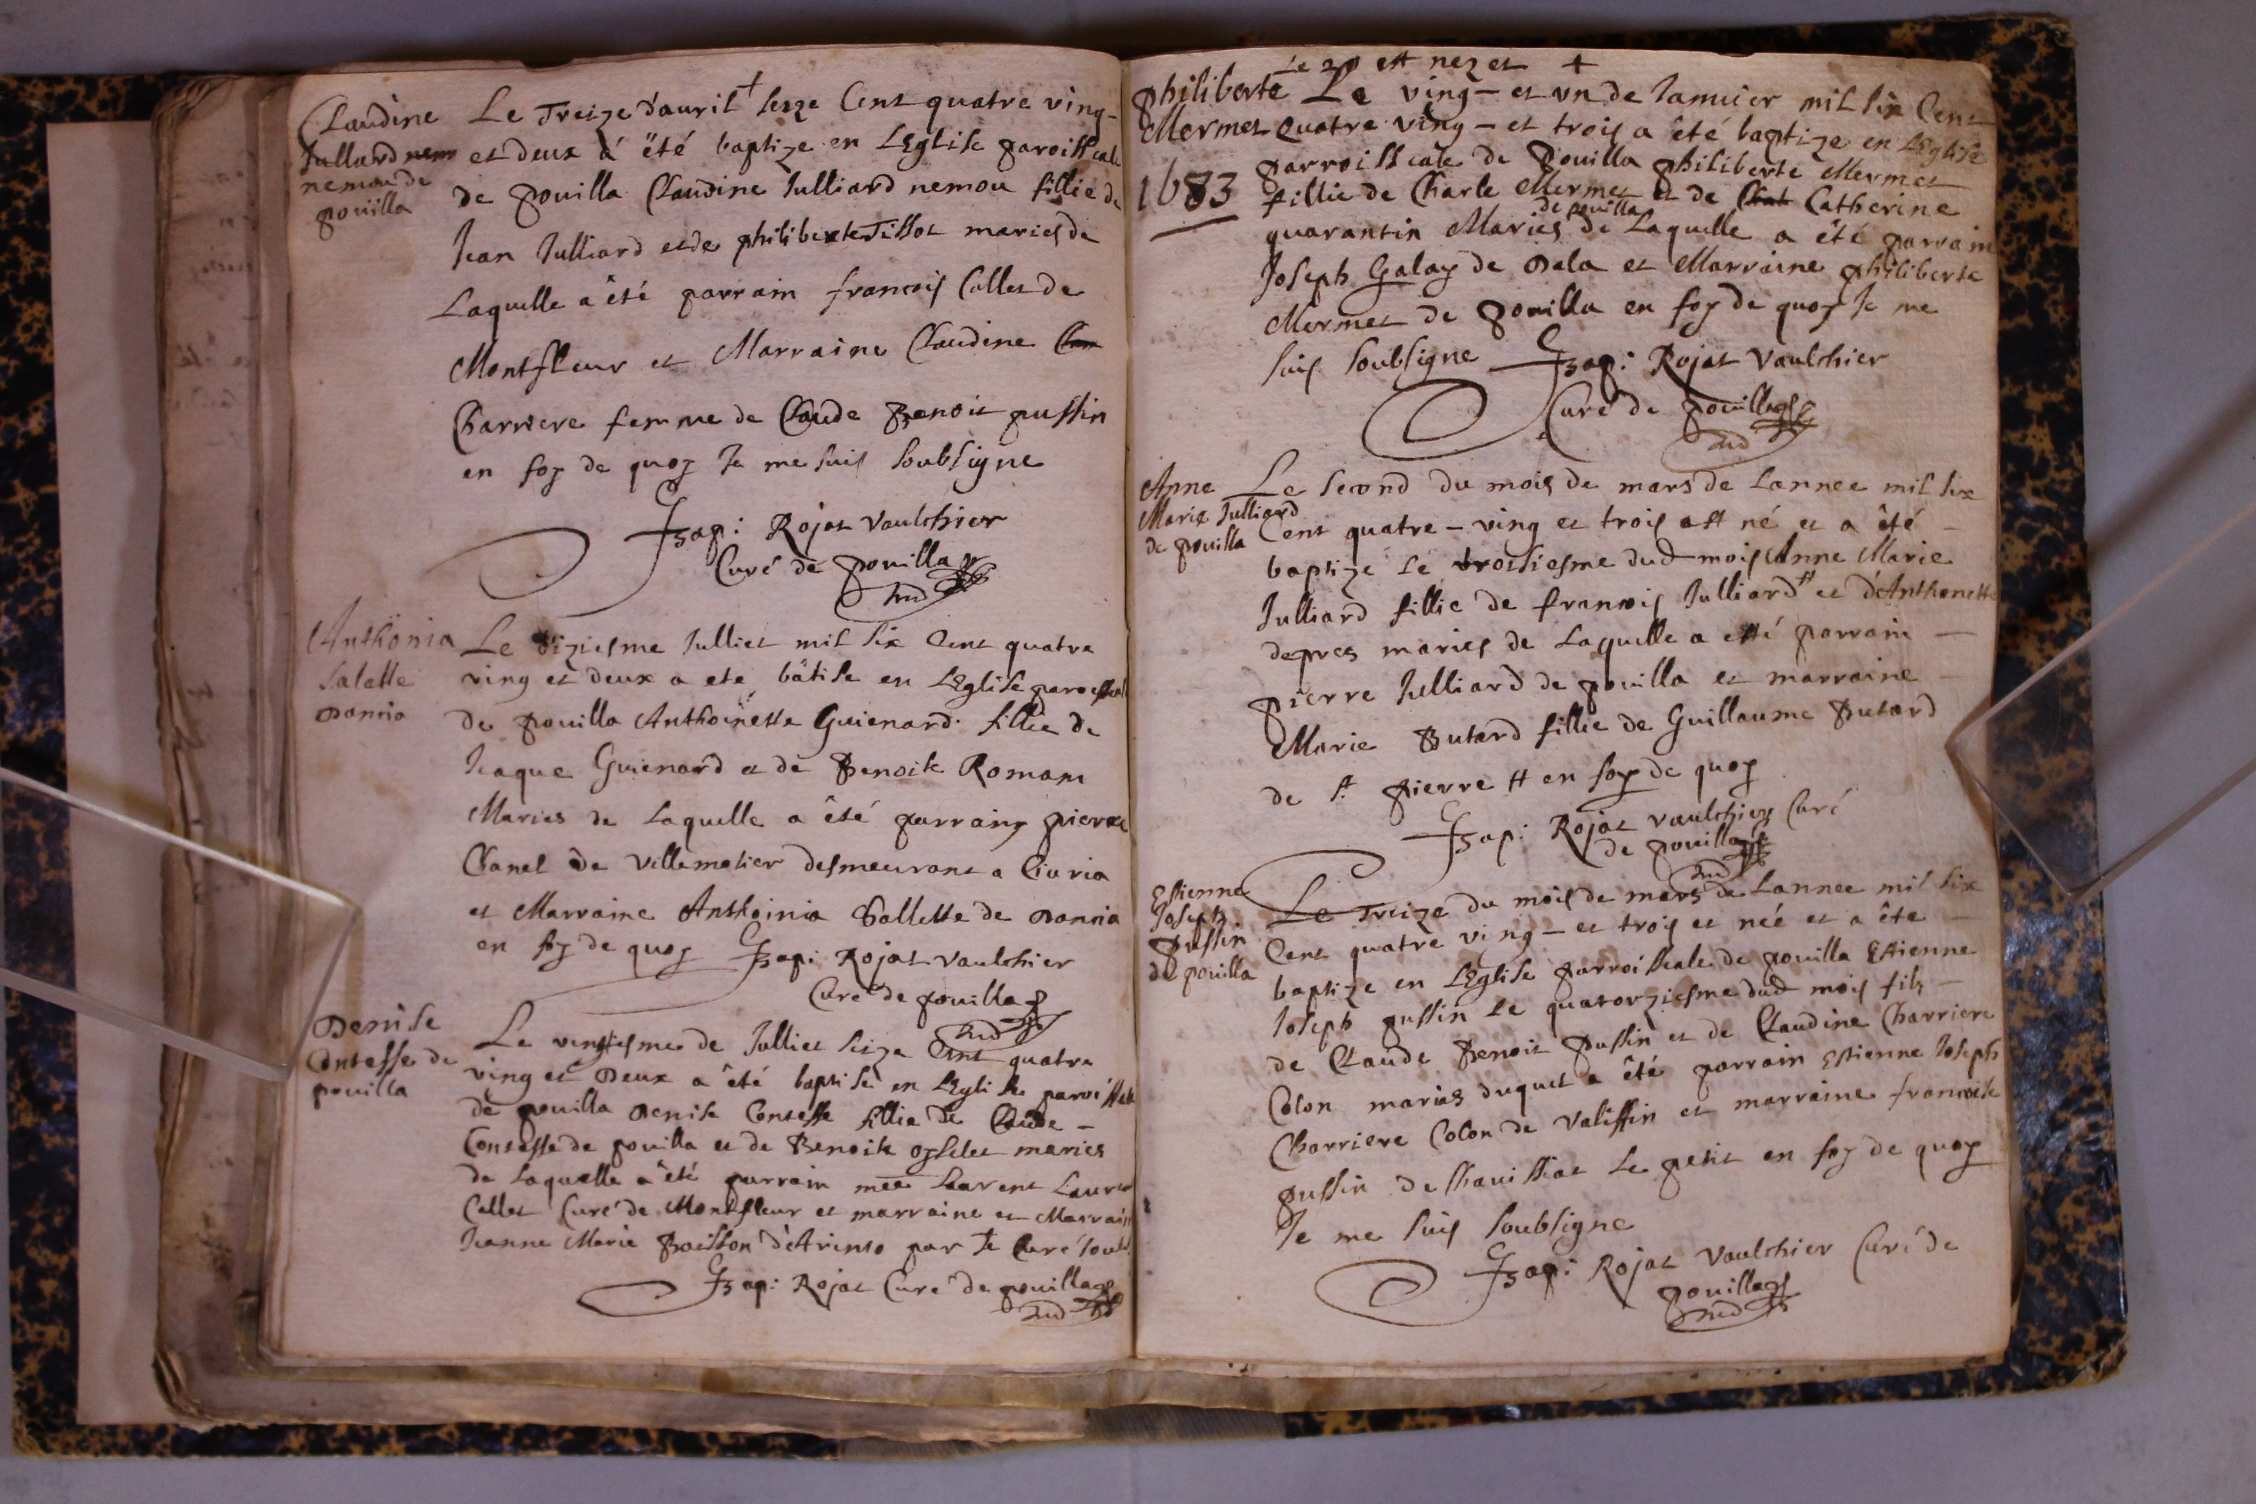 Claudine
Julliard nem
nemou de
pouilla
Le Treize d'auril + seize Cent quatre ving-
et deux a été baptize en LEglise paroisscale
de pouilla Claudine Julliard nemou fillie de
Jean Julliard et de philiberte Tissot maries de
Laquelle a été parrain francois Collet de
Montfleur et Marraine Claudine
Charriere femme de Claude Benoit pussin
en foy de quoy Je me suis soubsigne
Rojat Vaulchier
Curé de pouilla
Anthoinia
Salette
Dancia
Le diziesme Julliet mil six Cent quatre
ving et deux a ete bâtise en LEglise
de pouilla Anthoinette Guienard fillie de
Jaque Guienard et de Benoite Romam
Maries de Laquelle a êté parrain pierre
Chanel de Villemotier desmeurant a Civria
et Marraine Anthoinia Sallette de Dancia
en foy de quoy Rojat Vaulchier
Curé de pouilla
Denise
Contesse de
pouilla
Le vingtiesme de Julliet seize Cent quatre
ving et Deux a êté baptisé en LEglise
de pouilla Denise Contesse fillie de Claude -
Contesse de pouilla et de Benoite maries
de Laquelle a êté parrain Laurent
Collet Curé de Montfleur et marraine et Marraine
Jeanne Marie Boisson d'Arinto par Je Curé
Rojat Curé de pouilla
Le 20 est nez et +
philiberte
Mermet
1683
Le ving - et vn de Januier mil six Cent
quatre ving - et trois a êté baptize en LEglise
parroisscale de pouilla philiberte Mermet
fillie de Charle Mermet et de Catherine
de pouilla
quarantin Maries de Laquelle a été parrain
Joseph Galay de Dela et Marraine philiberte
Mermet de pouilla en foy de quoy Je me
suis soubsigne Rojat Vaulchier
Curé de pouilla
Anne
Marie Julliard
de pouilla
Le second du mois de mars de Lannee mil six
Cent quatre - ving et trois est né et a êté -
baptize Le troisiesme dud mois Anne Marie
Julliard fillie de francois Julliard et d'Anthonette
depres maries de Laquelle a esté parrain -
pierre Julliard de pouilla et marraine -
Marie Butard fillie de Guillaume Butard
de st pierre # en foy de quoy
Rojat Vaulchier Curé
de pouilla
Estienne
Joseph
Pussin
de pouilla
Le Treize du mois de mars de Lannee mil six
Cent quatre ving - et trois et née et a ête -
baptize en LEglise parroisscale de pouilla Estienne
Joseph pussin Le quatorziesme dud mois fils -
de Claude Benoit Pussin et de Claudine Charriere
Colon maries duquel a êté parrain Estienne Joseph
Charriere Colon de Valeffin et marraine francoise
pussin de Le petit en foy de quoy
Je me suis soubsigne
Rojat Vaulchier Curé de
pouilla